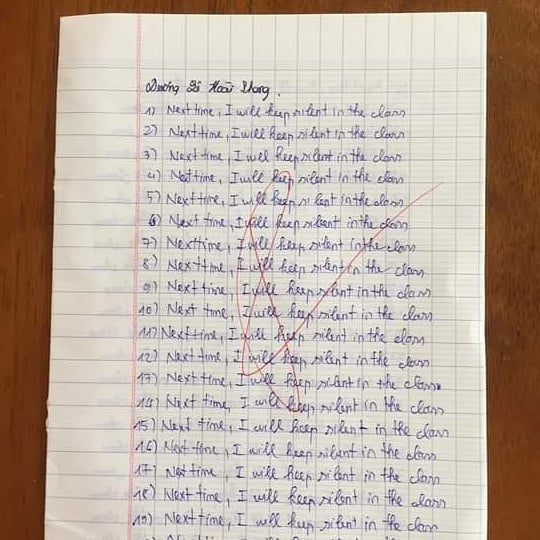 Dương
1) Next time, I will keep silent in the class
2) Next time, I will keep silent in the class
3) Next time, I will keep silent in the class
4) Next time, I will keep silent in the class
5) Next time, I will keep silent in the class
6) Next time, I will keep silent in the class
7) Next time, I will keep silent in the class
8) Next time, I will keep silent in the class
9) Next time, I will keep silent in the class
10) Next time, I will keep silent in the class
11) Next time, I will keep silent in the class
12) Next time, I will keep silent in the class
13) Next time, I will keep silent in the class
14) Next time, I will keep silent in the class
15) Next time, I will keep silent in the class
16) Next time, I will keep silent in the class
17) Next time, I will keep silent in the class
18) Next time, I will keep silent in the class
19) Next time, I will keep silent in the class